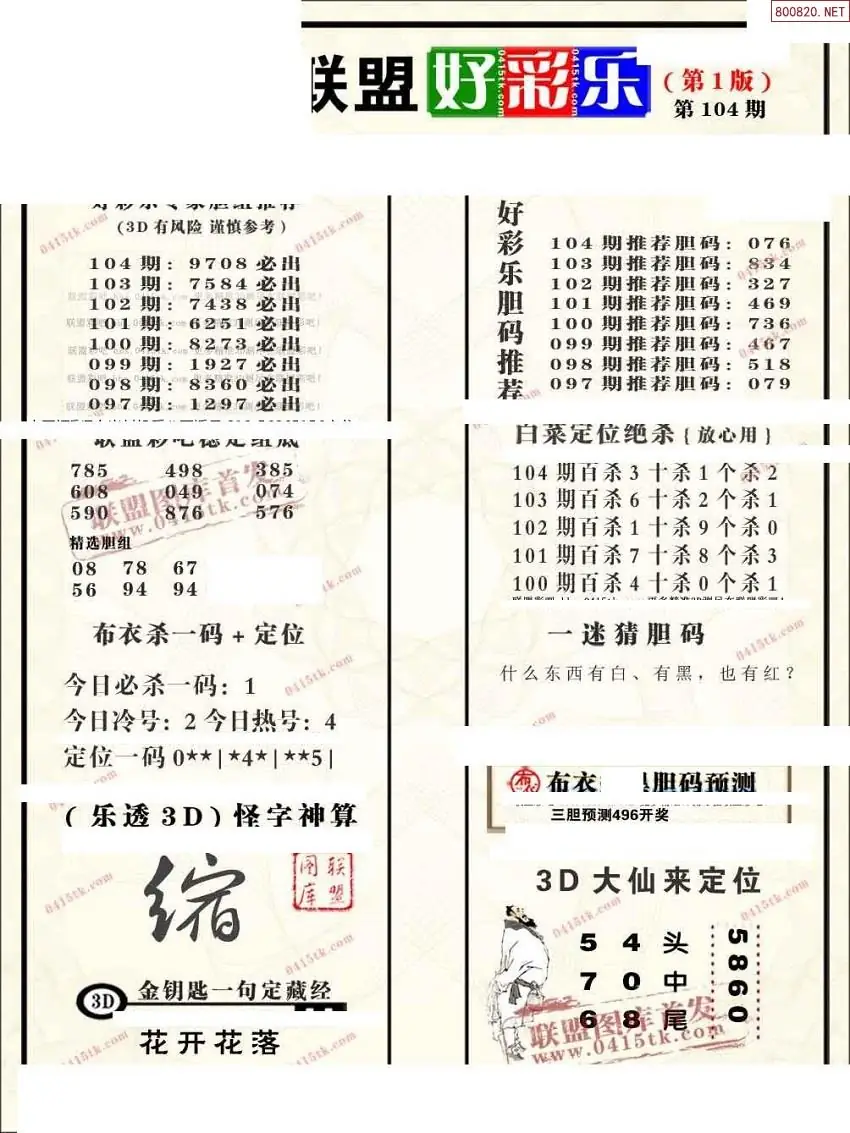 800820.NET
联盟好彩乐
(第1版)
第104期
好彩乐专家胆组推荐
(3D有风险 谨慎参考)
104期：9708必出
103期：7584必出
102期：7438必出
101期：6251必出
100期：8273必出
099期：1927必出
098期：8360必出
097期：1297必出
联盟彩吧稳定组底
785 498 385
608 049 074
590 876 576
精选胆组
08 78 67
56 94 94
布衣杀一码+定位
今日必杀一码：1
今日冷号：2 今日热号：4
定位一码0**|*4*|**5|
(乐透3D)怪字神算
缩
联盟图库
3D 金钥匙一句定藏经
花开花落
好彩乐胆码推荐
104期推荐胆码：076
103期推荐胆码：834
102期推荐胆码：327
101期推荐胆码：469
100期推荐胆码：736
099期推荐胆码：467
098期推荐胆码：518
097期推荐胆码：079
白菜定位绝杀{放心用}
104期百杀3十杀1个杀2
103期百杀6十杀2个杀1
102期百杀1十杀9个杀0
101期百杀7十杀8个杀3
100期百杀4十杀0个杀1
一迷猜胆码
什么东西有白、有黑，也有红？
布衣 胆码预测
三胆预测496开奖
3D大仙来定位
5 4 头
7 0 中
6 8 尾
5860
联盟图库首发
www.0415tk.com